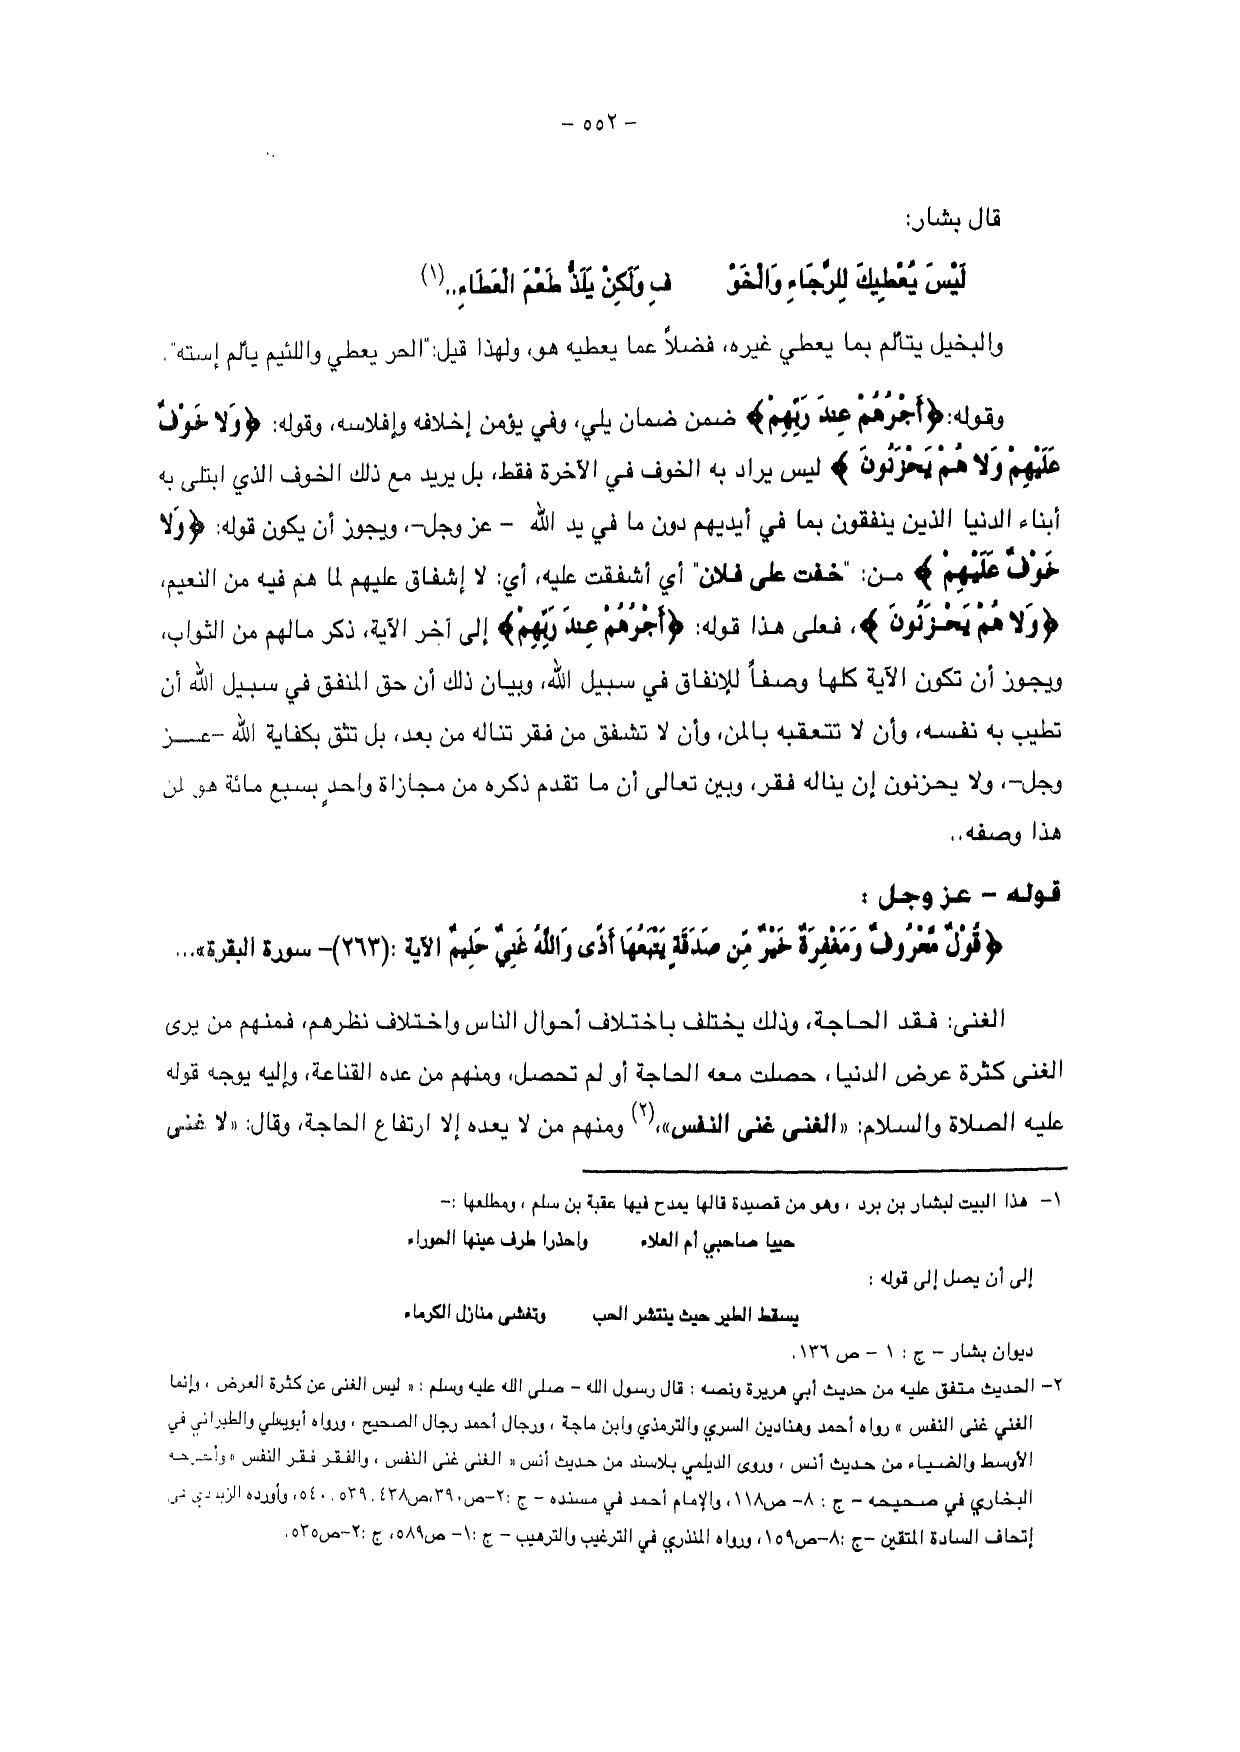 – ٥٥٢ –
قال بشار:
لَيْسَ يُعْطِيكَ لِلرَّجَاءِ وَالْخَوْ فِ وَلَكِنْ يَلَذُّ طَعْمَ الْعَطَاءِ..(١)
والبخيل يتألم بما يعطي غيره، فضلاً عما يعطيه هو، ولهذا قيل:"الحر يعطي واللئيم يألم إسته".
وقوله:﴿أَجْرُهُمْ عِندَ رَبِّهِمْ﴾ ضمن ضمان يلي، وفي يؤمن إخلافه وإفلاسه، وقوله: ﴿وَلا خَوْفٌ
عَلَيْهِمْ وَلا هُمْ يَحْزَنُونَ ﴾ ليس يراد به الخوف في الآخرة فقط، بل يريد مع ذلك الخوف الذي ابتلى به
أبناء الدنيا الذين ينفقون بما في أيديهم دون ما في يد الله – عز وجل–، ويجوز أن يكون قوله: ﴿وَلا
خَوْفٌ عَلَيْهِمْ ﴾ مـن: "خفت على فلان" أي أشفقت عليه، أي: لا إشفاق عليهم لما هم فيه من النعيم،
﴿وَلا هُمْ يَحْزَنُونَ ﴾، فعلى هذا قوله: ﴿أَجْرُهُمْ عِندَ رَبِّهِمْ﴾ إلى آخر الآية، ذكر مالهم من الثواب،
ويجوز أن تكون الآية كلها وصفاً للإنفاق في سبيل الله، وبيان ذلك أن حق المنفق في سبيل الله أن
تطيب به نفسه، وأن لا تتعقبه بالمن، وأن لا تشفق من فقر تناله من بعد، بل تثق بكفاية الله –عـــز
وجل–، ولا يحزنون إن يناله فقر، وبين تعالى أن ما تقدم ذكره من مجازاة واحدٍ بسبع مائة هو لن
هذا وصفه..
قوله – عز وجل :
﴿قَوْلٌ مَّعْرُوفٌ وَمَغْفِرَةٌ خَيْرٌ مِّن صَدَقَةٍ يَتْبَعُهَا أَذًى وَاللَّهُ غَنِيٌّ حَلِيمٌ الآية :(٢٦٣)– سورة البقرة»...
الغنى: فـقد الحـاجة، وذلك يختلف باختلاف أحوال الناس واختلاف نظرهم، فمنهم من يرى
الغنى كثرة عرض الدنيا، حصلت معه الحاجة أو لم تحصل، ومنهم من عده القناعة، وإليه يوجه قوله
عليه الصلاة والسلام: «الغنى غنى النفس»،(٢) ومنهم من لا يعده إلا ارتفاع الحاجة، وقال: «لا غنى
١– هذا البيت لبشار بن برد ، وهو من قصيدة قالها يمدح فيها عقبة بن سلم ، ومطلعها :–
حييا صاحبي أم العلاء واحذرا طرف عينها الحوراء
إلى أن يصل إلى قوله :
يسقط الطير حيث ينتشر الحب وتغشى منازل الكرماء
ديوان بشار – ج : ١ – ص ١٣٦.
٢– الحديث متفق عليه من حديث أبي هريرة ونصه : قال رسول الله – صلى الله عليه وسلم : « ليس الغنى عن كثرة العرض ، وإنما
الغني غنى النفس » رواه أحمد وهنادبن السري والترمذي وابن ماجة ، ورجال أحمد رجال الصحيح ، ورواه أبويعلي والطبراني في
الأوسط والضياء من حديث أنس ، وروى الديلمي بلاسند من حديث أنس « الغنى غنى النفس ، والفقر فقر النفس » وأخرجه
البخاري في صحيحه – ج : ٨– ص١١٨، والإمام أحمد في مسنده – ج :٢–ص٣٩٠،ص٤٣٨، ٥٣٩، ٥٤٠، وأورده الزبيدي في
إتحاف السادة المتقين –ج :٨–ص١٥٩، ورواه المنذري في الترغيب والترهيب – ج :١– ص٥٨٩، ج :٢–ص٥٣٥.